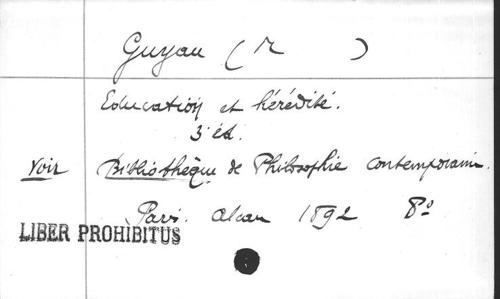 Guyau (M )
Education et hérédité.
3e éd.
Voir Bibliothèque de Philosophie contemporain.
Paris. Alcan 1892 8º
LIBER PROHIBITUS